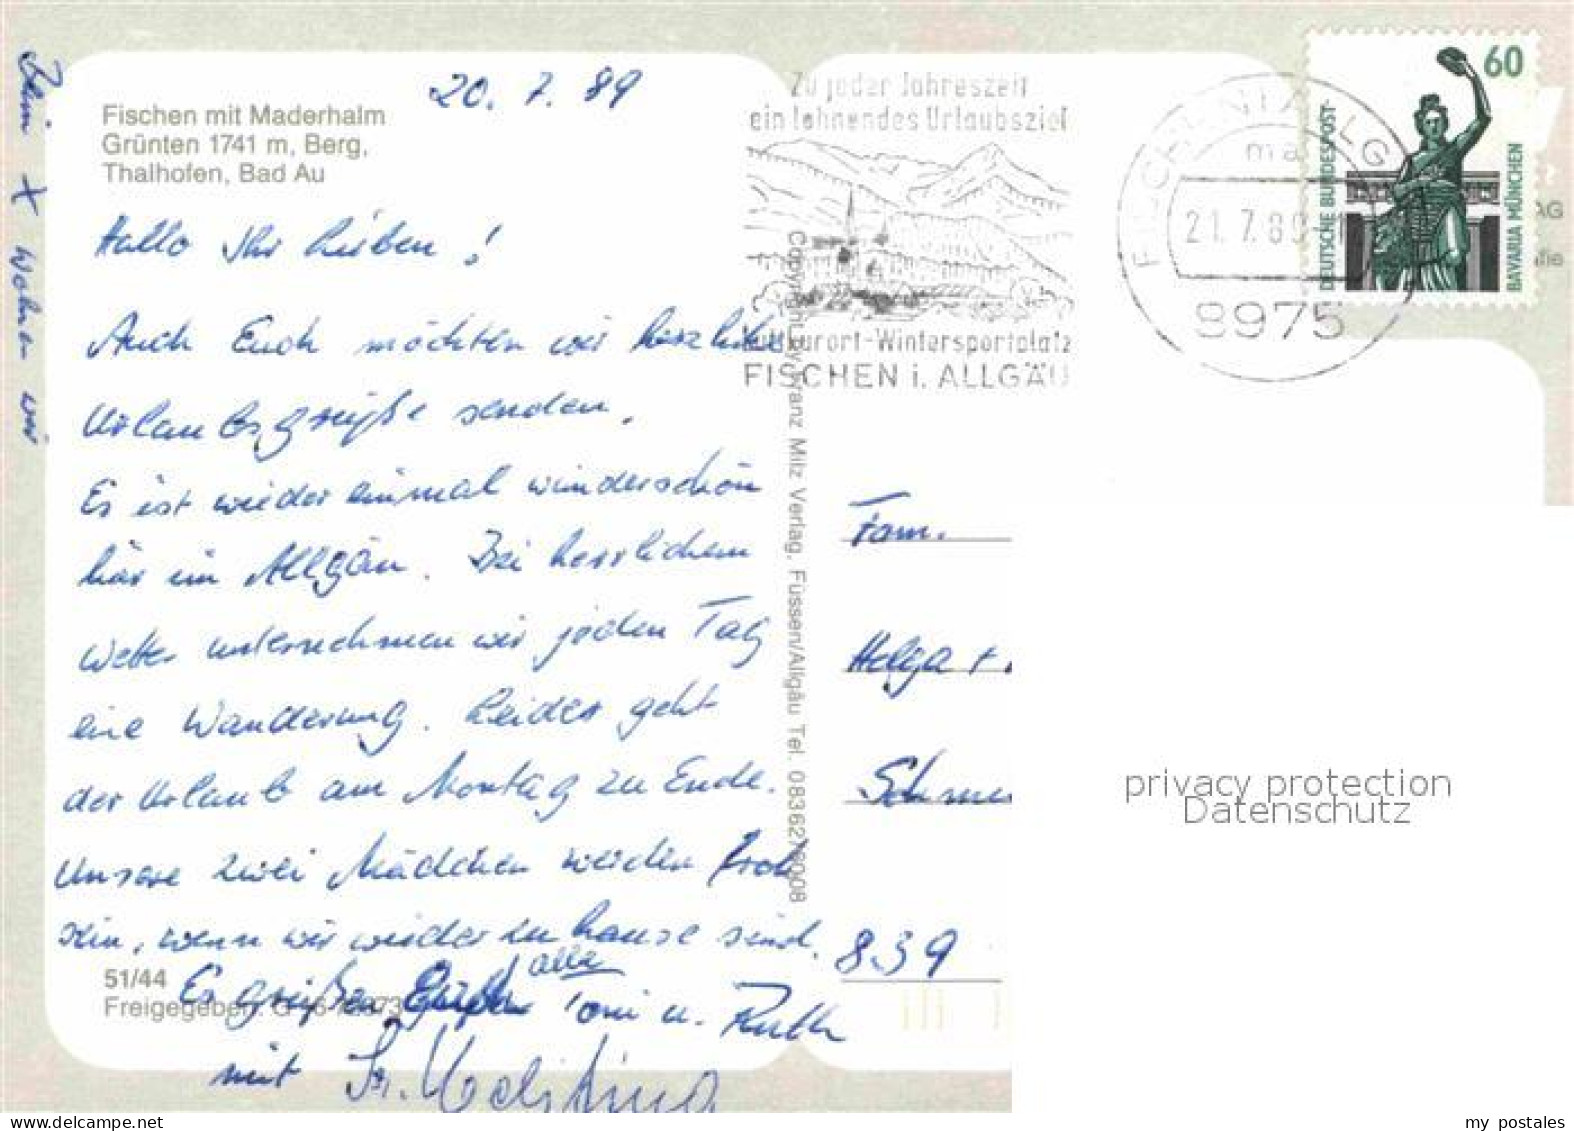 Beim X wohnen wir
Fischen mit Maderhalm
Grünten 1741 m, Berg,
Thalhofen, Bad Au
20. 7. 89
Hallo Ihr Lieben!
Auch Euch möchten wir herzliche
Urlaubsgrüße senden.
Es ist wieder einmal wunderschön
hier im Allgäu. Bei herrlichem
Wetter unternehmen wir jeden Tag
eine Wanderung. Leider geht
der Urlaub am Montag zu Ende.
Unsere zwei Mädchen werden froh
sein, wenn wir wieder zu hause sind.
51/44
Freigegeben:
Es grüßen Euch alle Toni u. Ruth
mit
Copyright by Franz Milz Verlag, Füssen/Allgäu Tel.
Zu jeder Jahreszeit
ein lohnendes Urlaubsziel
Luftkurort-Wintersportplatz
FISCHEN i. ALLGÄU
FISCHEN I ALLG
ma
21.7.89
8975
60
DEUTSCHE BUNDESPOST
BAVARIA MÜNCHEN
AG
Fam.
Helga +
839
privacy protection
Datenschutz
my postales